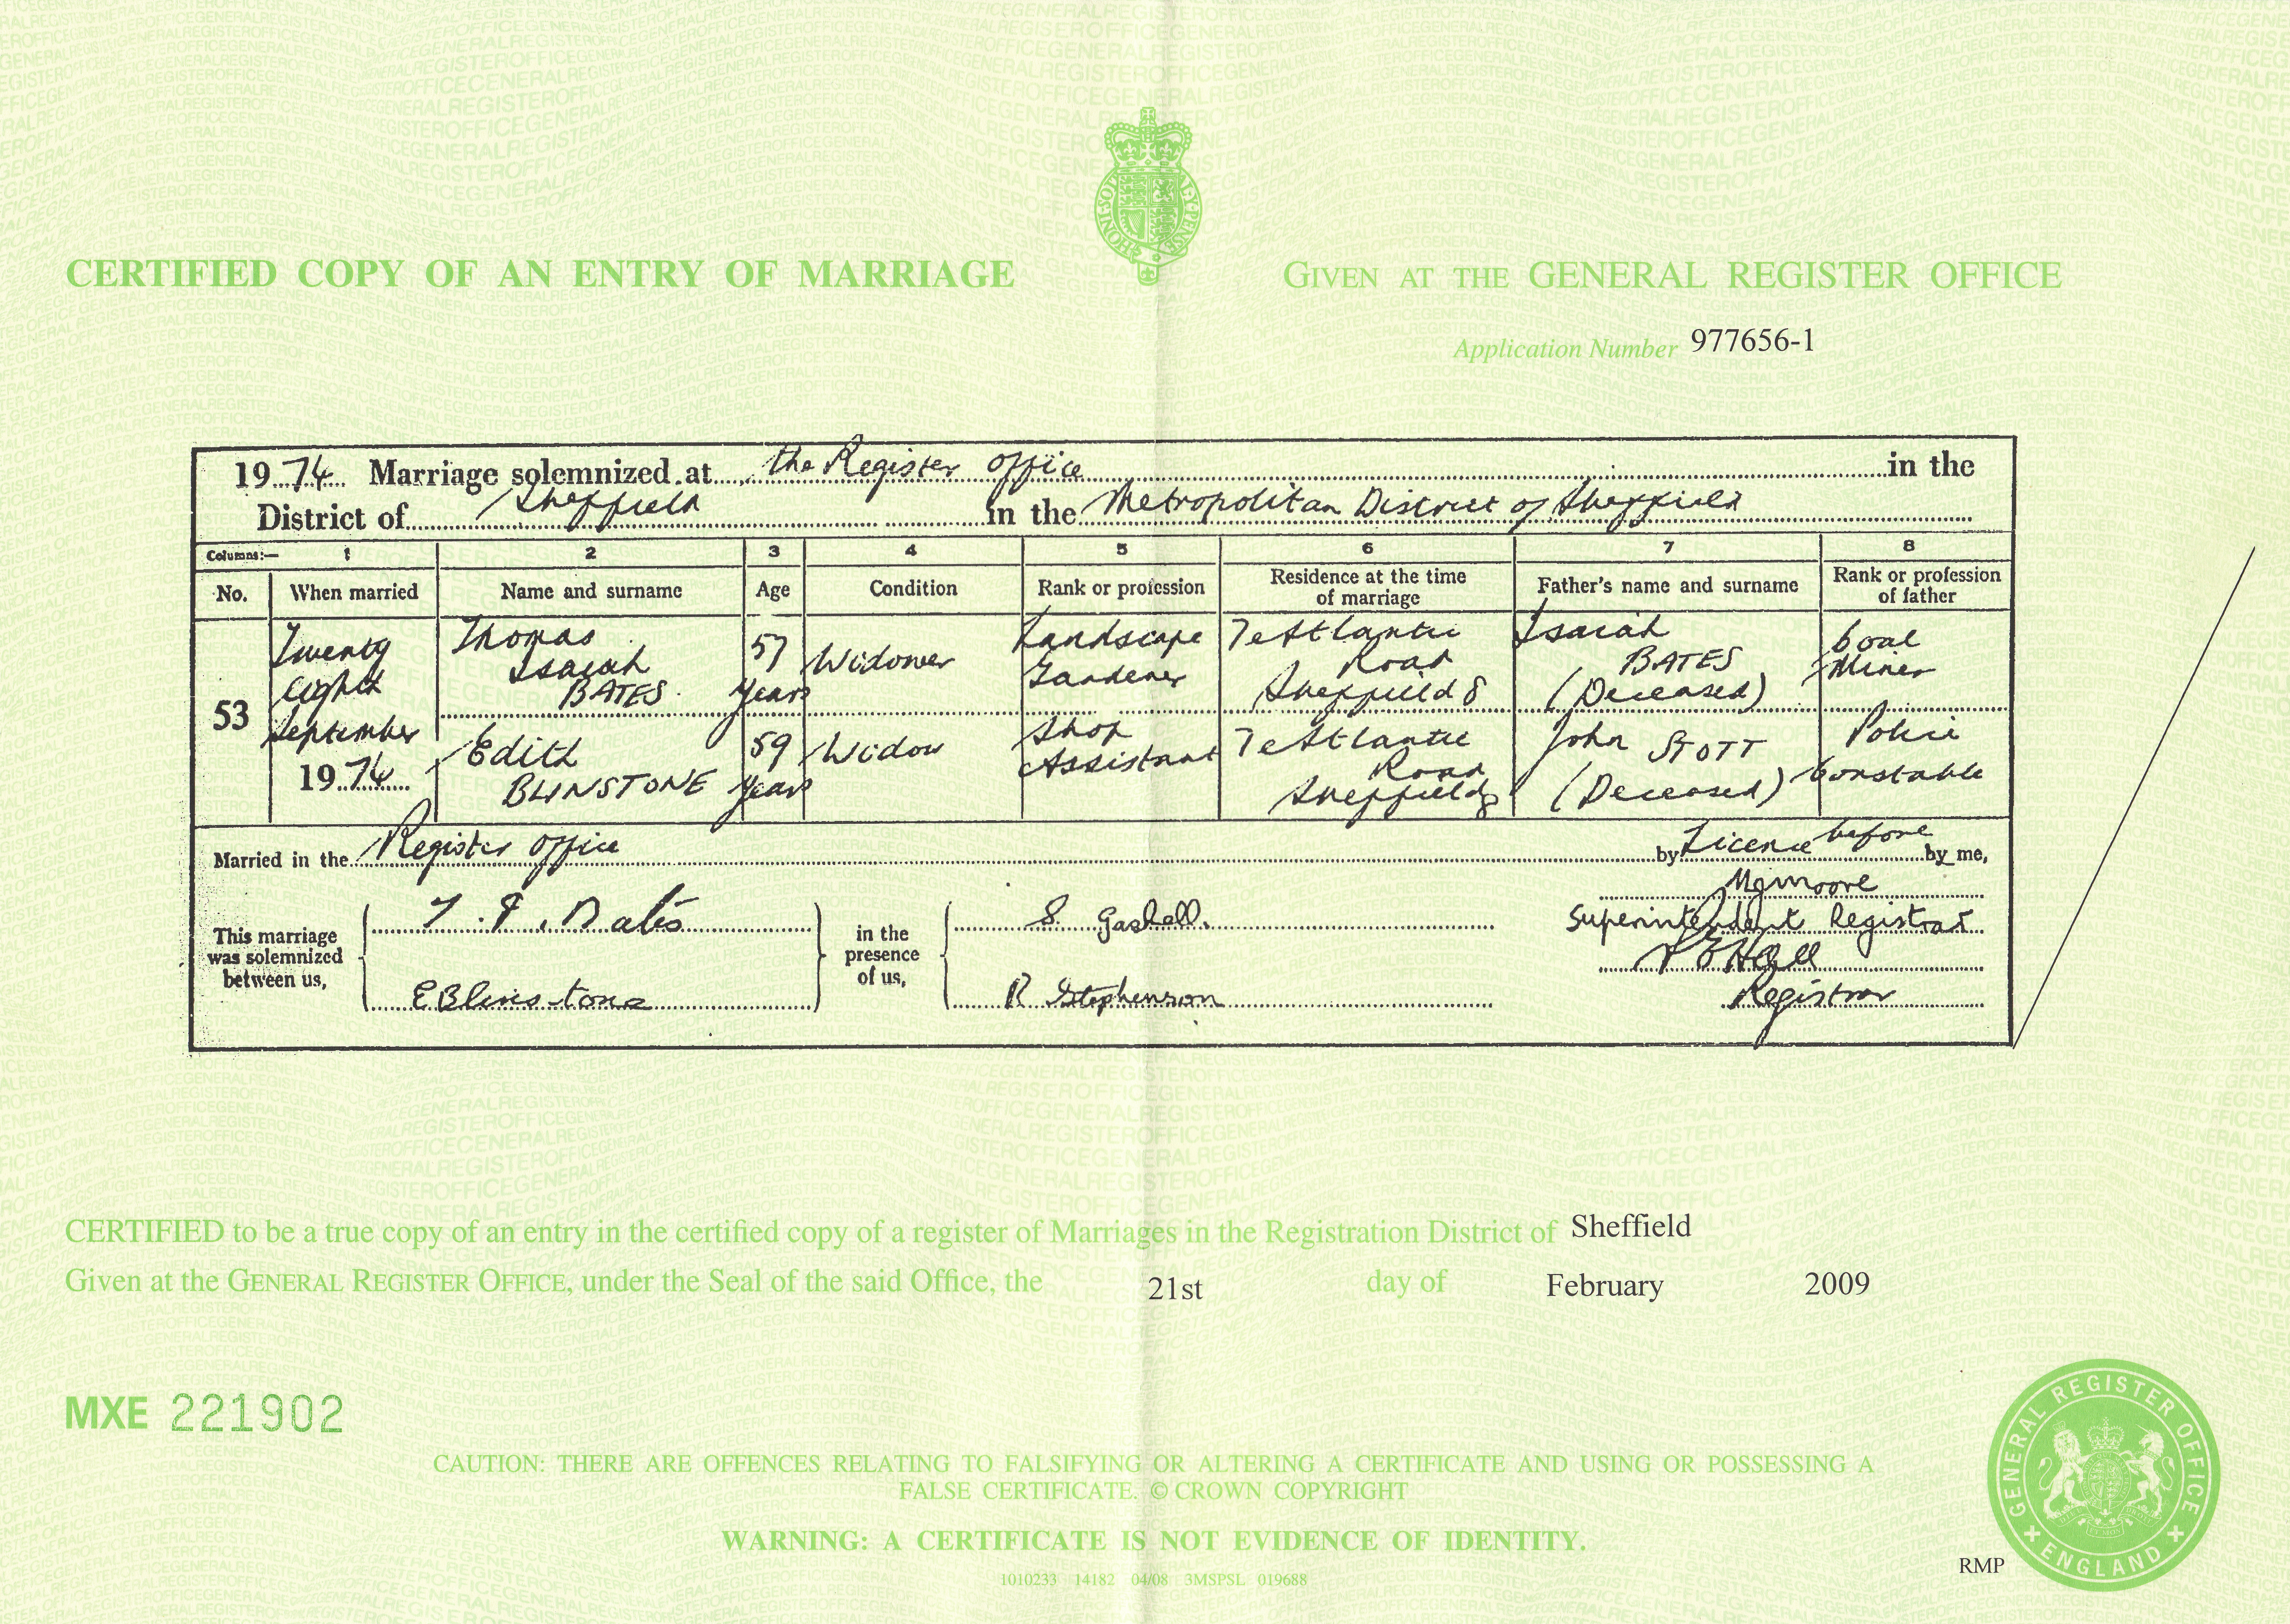 CERTIFIED COPY OF AN ENTRY OF MARRIAGE
GIVEN AT THE GENERAL REGISTER OFFICE
Application Number 977656-1
1974 Marriage solemnized at the Register Office in the
District of Sheffield in the Metropolitan District of Sheffield
Columns:— 1 2 3 4 5 6 7 8
No. When married Name and surname Age Condition Rank or profession Residence at the time of marriage Father's name and surname Rank or profession of father
53
Twenty
eighth
September
1974
Thomas
Isaiah
BATES
57
years
Widower
Landscape
Gardener
Atlantic
Road
Sheffield 8
Isaiah
BATES
(Deceased)
Coal
Miner
Edith
BLINSTONE
59
years
Widow
Shop
Assistant
Atlantic
Road
Sheffield 8
John STOTT
(Deceased)
Police
Constable
Married in the Register Office by Licence before by me,
This marriage
was solemnized
between us,
T. I. Bates
E Blinstone
in the
presence
of us,
S. Gaskell.
R Stephenson
Moore
Superintendent Registrar
Hall
Registrar
CERTIFIED to be a true copy of an entry in the certified copy of a register of Marriages in the Registration District of Sheffield
Given at the GENERAL REGISTER OFFICE, under the Seal of the said Office, the 21st day of February 2009
MXE 221902
CAUTION: THERE ARE OFFENCES RELATING TO FALSIFYING OR ALTERING A CERTIFICATE AND USING OR POSSESSING A
FALSE CERTIFICATE. © CROWN COPYRIGHT
WARNING: A CERTIFICATE IS NOT EVIDENCE OF IDENTITY.
1010233 14182 04/08 3MSPSL 019688
RMP
GENERAL REGISTER OFFICE
ENGLAND